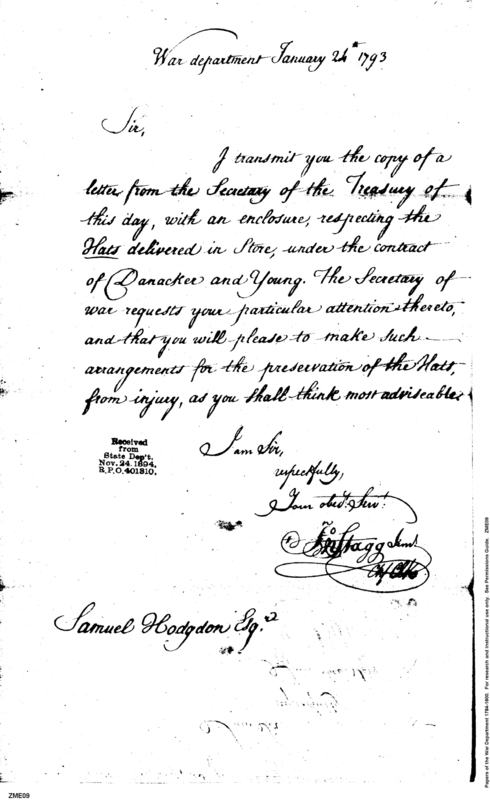 War department January 24th 1793
Sir,
I transmit you the copy of a
letter from the Secretary of the Treasury of
this day, with an enclosure, respecting the
Hats delivered in Store, under the contract
of Danacker and Young. The Secretary of
war requests your particular attention thereto,
and that you will please to make such
arrangements for the preservation of the Hats,
from injury, as you shall think most adviseable.
Received
from
State Dep't.
Nov. 24. 1894.
R.P.O. 401310.
I am Sir,
respectfully,
Your obedt. Servt.
Jno Stagg Junr.
Samuel Hodgdon Esqr.
Papers of the War Department 1784-1800. For research and instructional use only. See Permissions Guide. ZME09
ZME09